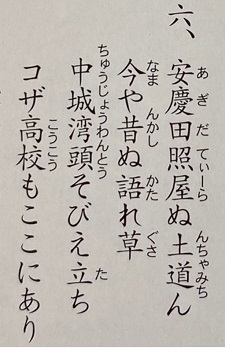 六、安慶田照屋ぬ土道ん
今や昔ぬ語れ草
中城湾頭そびえ立ち
コザ高校もここにあり
あぎだてぃーらんちゃみち
なまんかしかたぐさ
ちゅうじょうわんとうた
こうこう